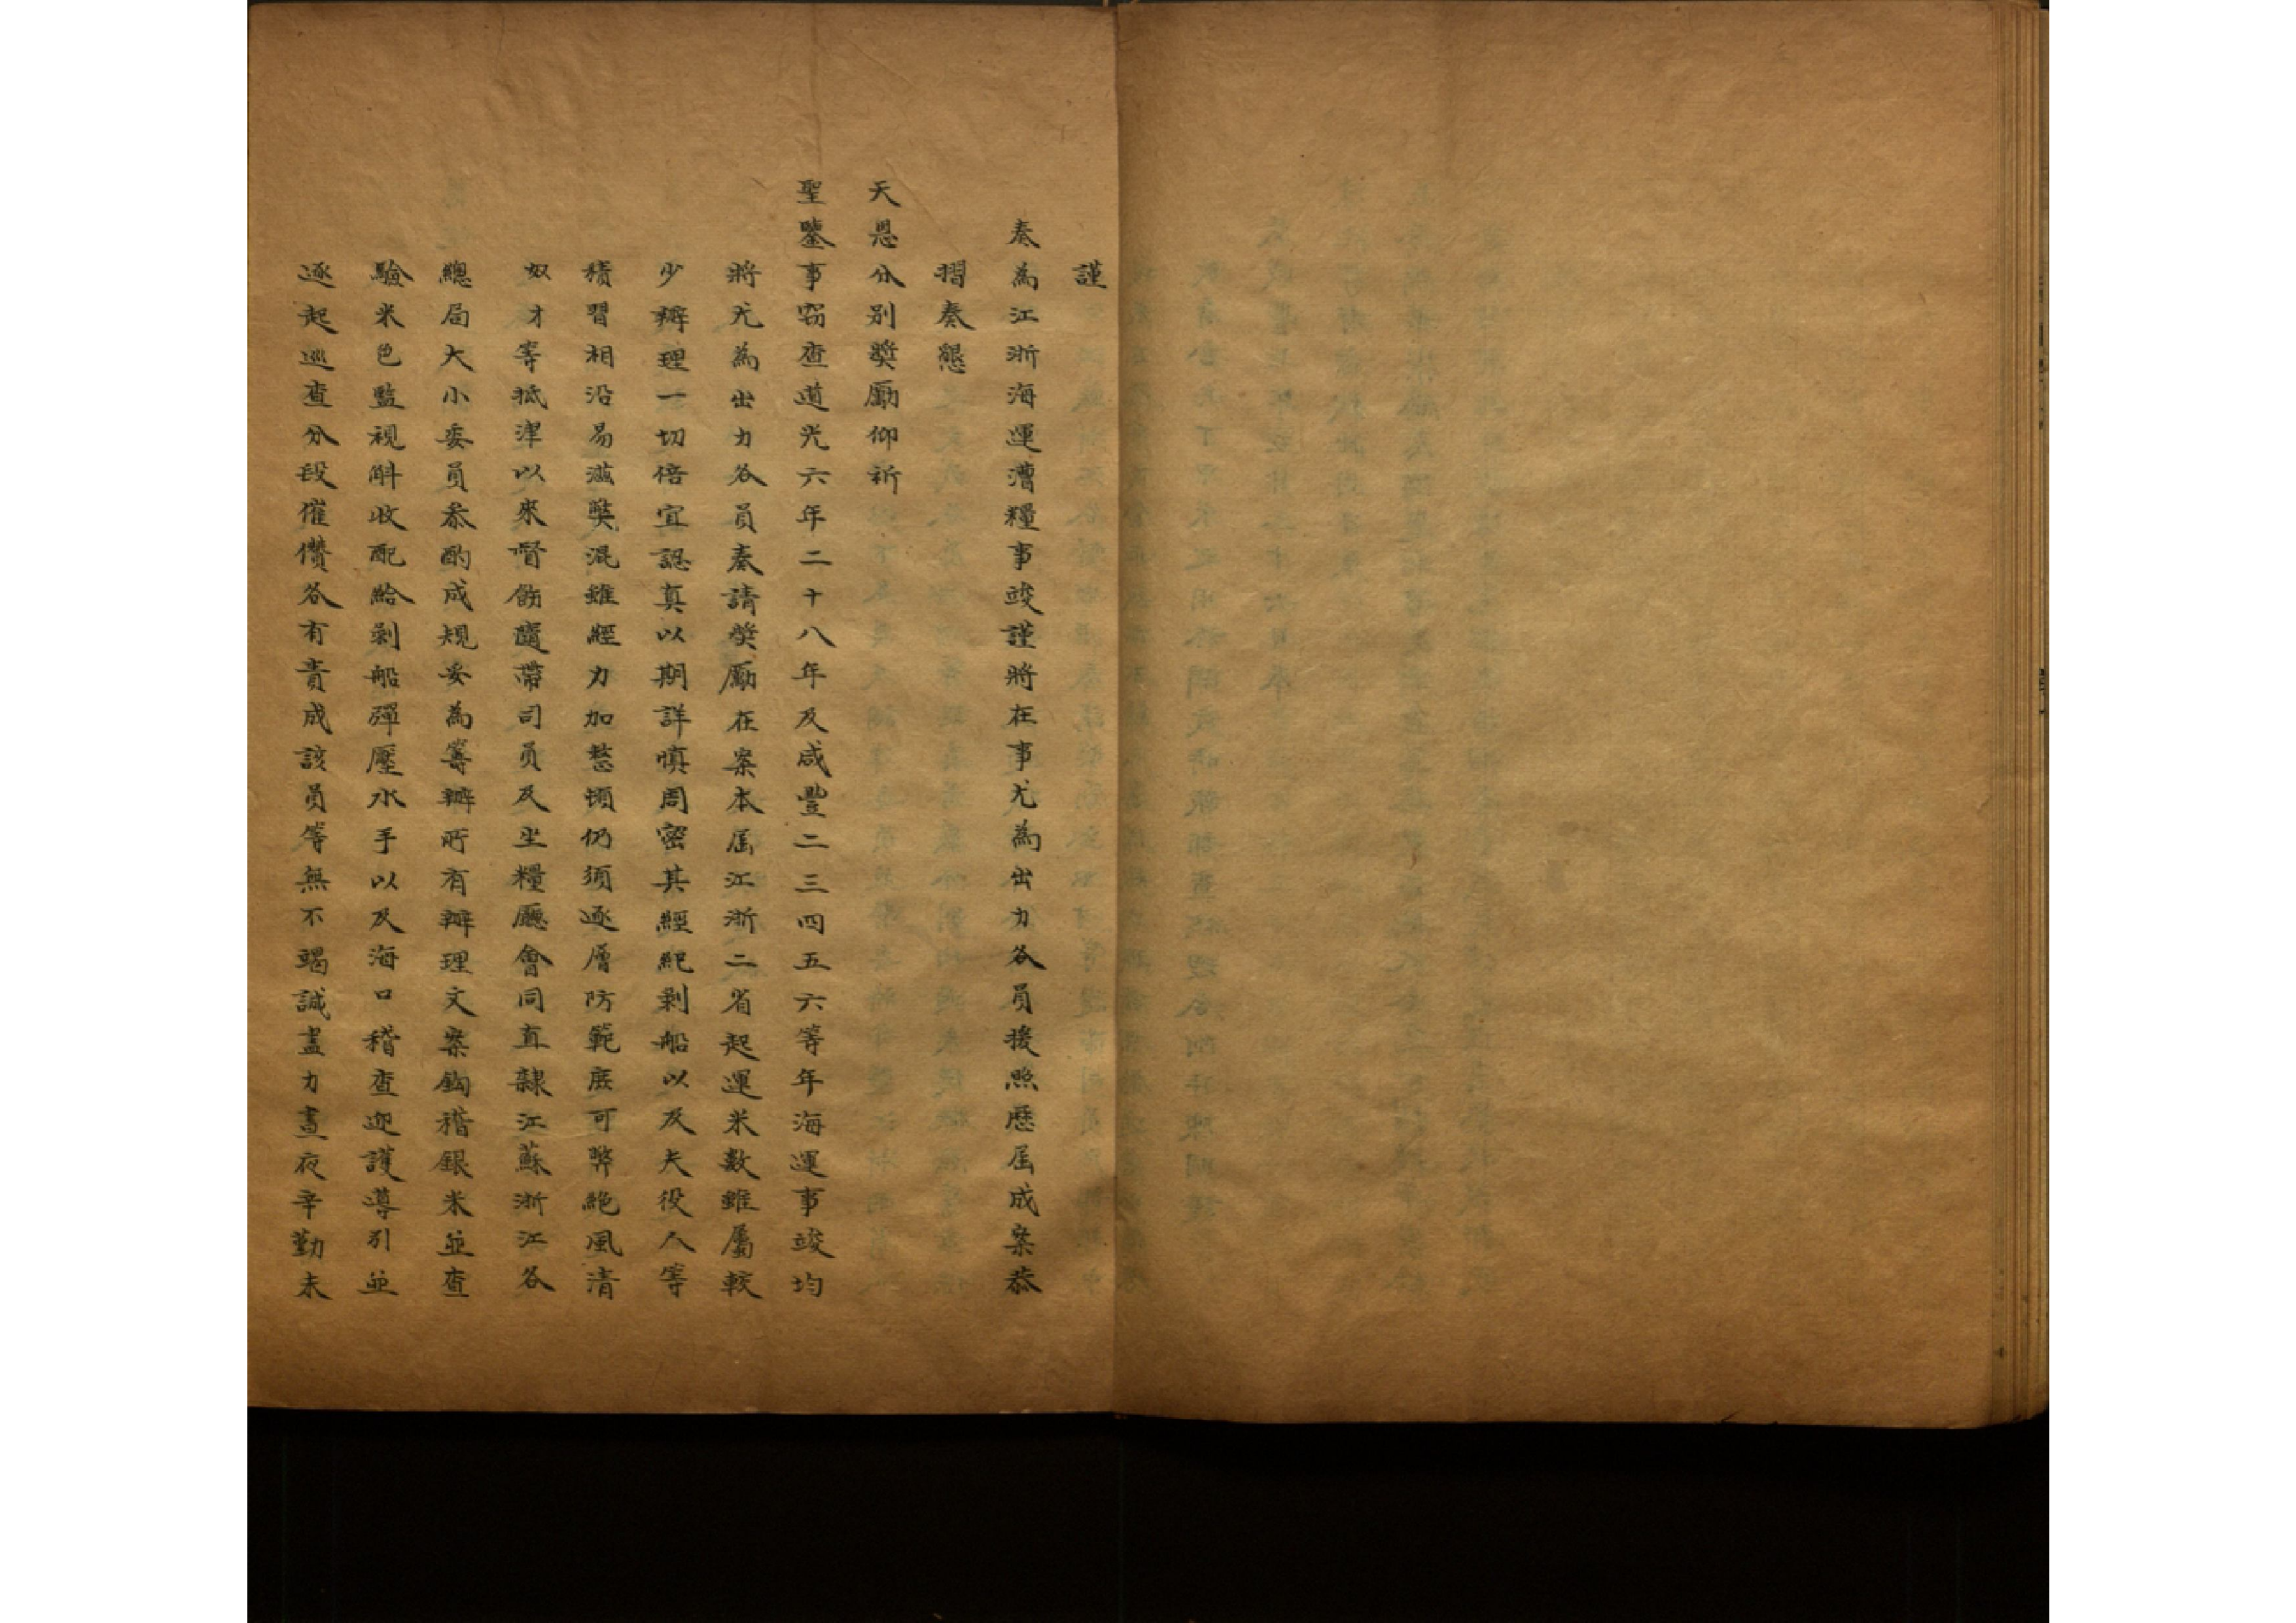 謹
奏為江浙海運漕糧事竣謹將在事尤為出力各員援照歷屆成案恭
摺奏懇
天恩分別獎勵仰祈
聖鑒事竊查道光六年二十八年及咸豐二三四五六等年海運事竣均
將尤為出力各員奏請獎勵在案本屆江浙二省起運米數雖屬較
少辦理一切倍宜認真以期詳慎周密其經紀剝船以及夫役人等
積習相沿易滋弊混雖經力加整頓仍須逐層防範庶可弊絕風清
奴才等抵津以來督飭隨帶司員及坐糧廳會同直隸江蘇浙江各
總局大小委員叅酌成規妥為籌辦所有辦理文案鈎稽銀米並查
驗米色監視斛收配給剝船彈壓水手以及海口稽查迎護導引並
逐起巡查分段催儹各有責成該員等無不竭誠盡力晝夜辛勤未